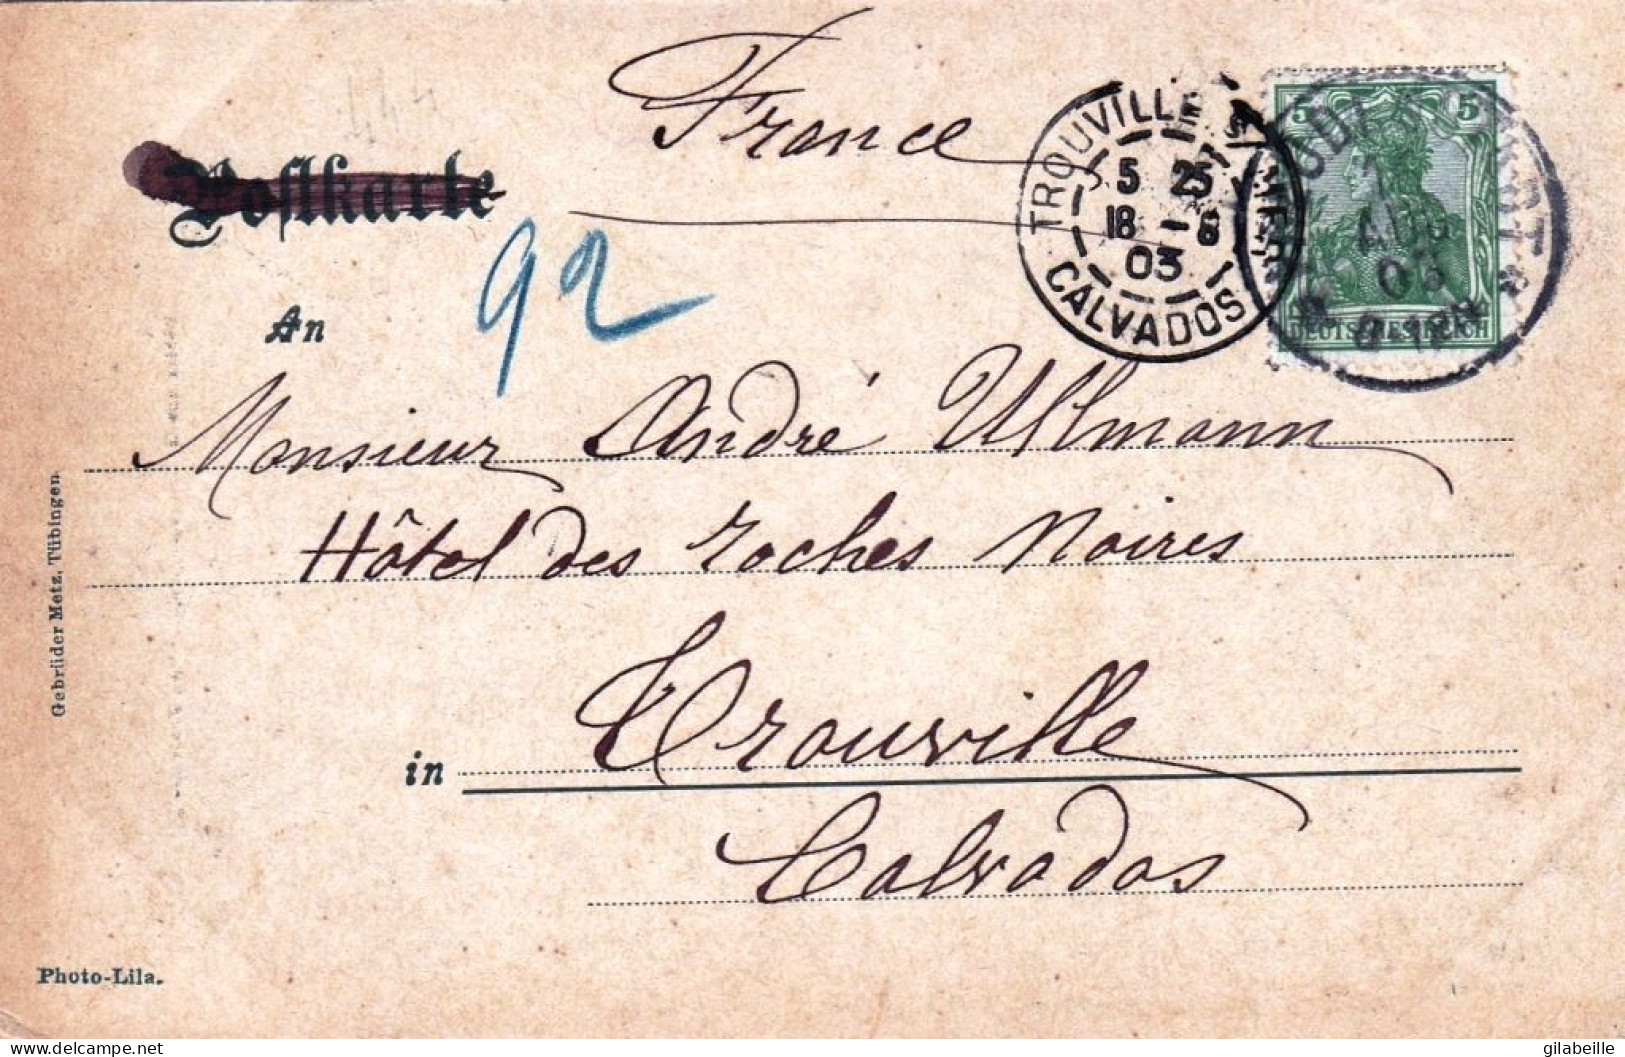 France
Postkarte
92
An
TROUVILLE S MER
5 25
18 - 8
03
CALVADOS
5
AUG
03
DEUTSCHES REICH
Monsieur André Ullmann
Hôtel des roches Noires
in Trouville
Calvados
Gebrüder Metz, Tübingen
Photo-Lila.
delcampe.net
gilabeille